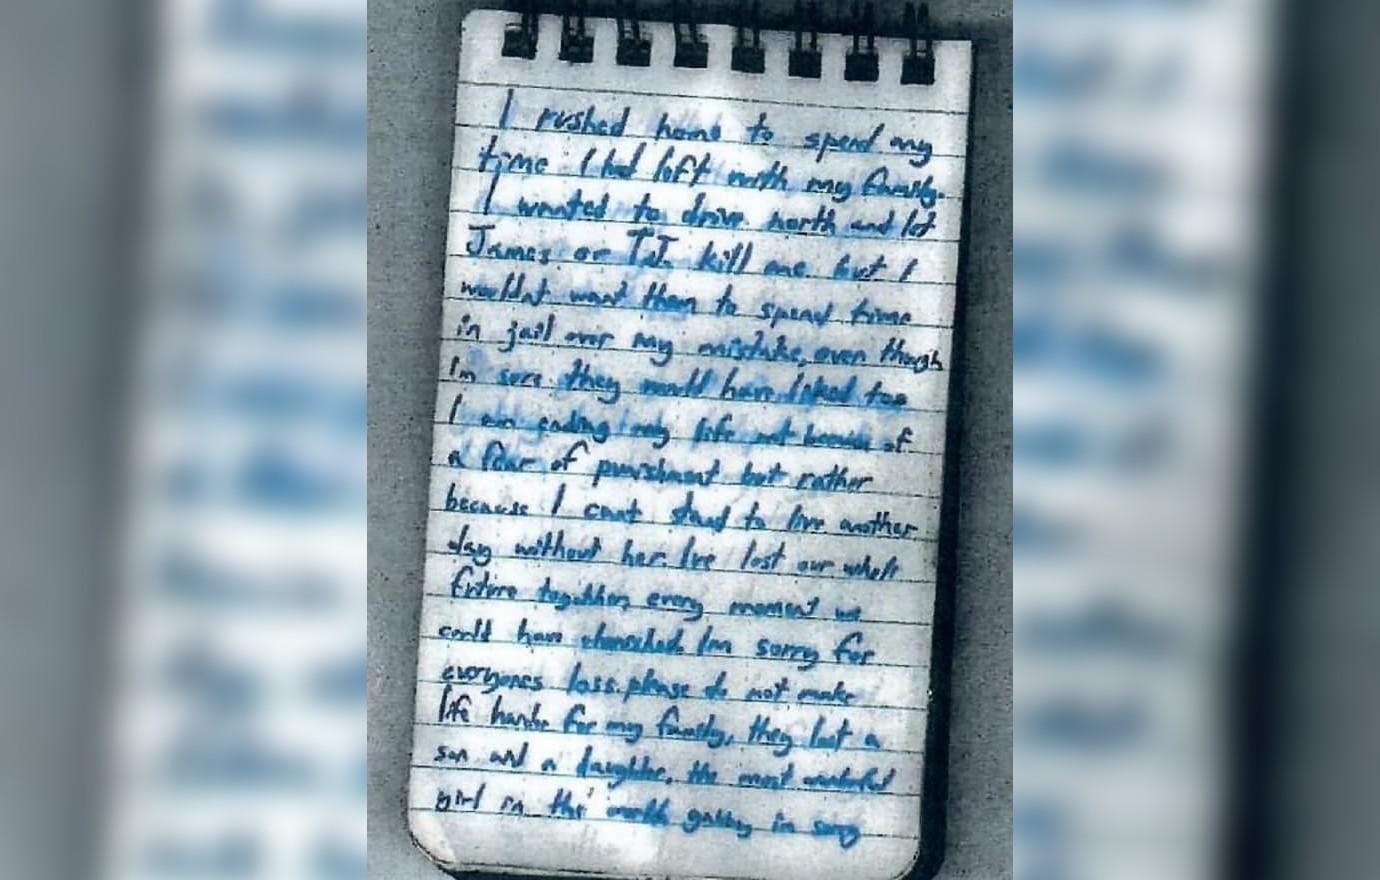 I rushed home to spend my
time I had left with my family.
I wanted to drive north and let
James or T.J. kill me but I
wouldnt want them to spend time
in jail over my mistake, even though
Im sure they would have liked too
I am ending my life not because of
a fear of punishment but rather
because I cant stand to live another
day without her. Ive lost our whole
future together, every moment we
could have cherished. Im sorry for
everyones loss. please do not make
life harder for my family, they lost a
son and a daughter. the most wonderful
girl in the world Gabby im sorry